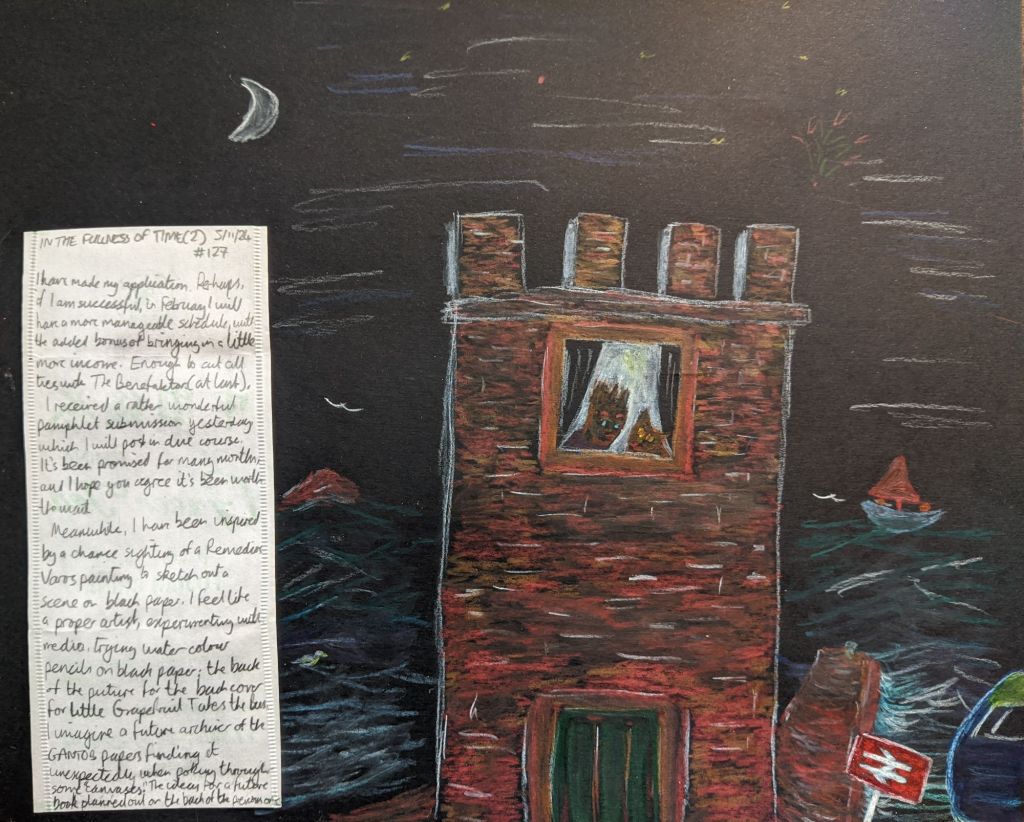 IN THE FULLNESS OF TIME (2) 5/11/24
#127
I have made my application. Perhaps,
if I am successful, in February I will
have a more manageable schedule, with
the added bonus of bringing in a little
more income. Enough to cut all
ties with The Benefaktor (at last).
I received a rather wonderful
pamphlet submission yesterday
which I will post in due course.
It's been promised for many months,
and I hope you agree it's been worth
the wait.
Meanwhile, I have been inspired
by a chance sighting of a Remedios
Varos painting to sketch out a
scene on black paper. I feel like
a proper artist, experimenting with
media, trying water colour
pencils on black paper; the back
of the picture for the back cover
for Little Grapefruit Takes the Bus.
I imagine a future archivist of the
papers finding it
unexpectedly when poking through
some canvases, "The ideas for a future
book planned out on the back of the previous one